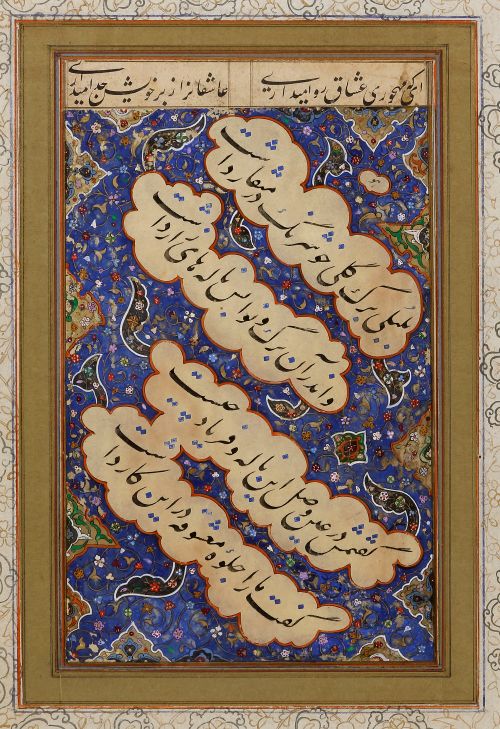 ایکه مهجوری عشاق روا میداری عاشقانرا ز بر خویش جدا میداری
هو
بلبلی برگ گلی خوشرنگ در منقار داشت
واندران برگ و نوا بس ناله های زار داشت
گفتمش در عین وصل این ناله و فریاد چیست
گفت ما را جلوهٔ معشوقه در این کار داشت